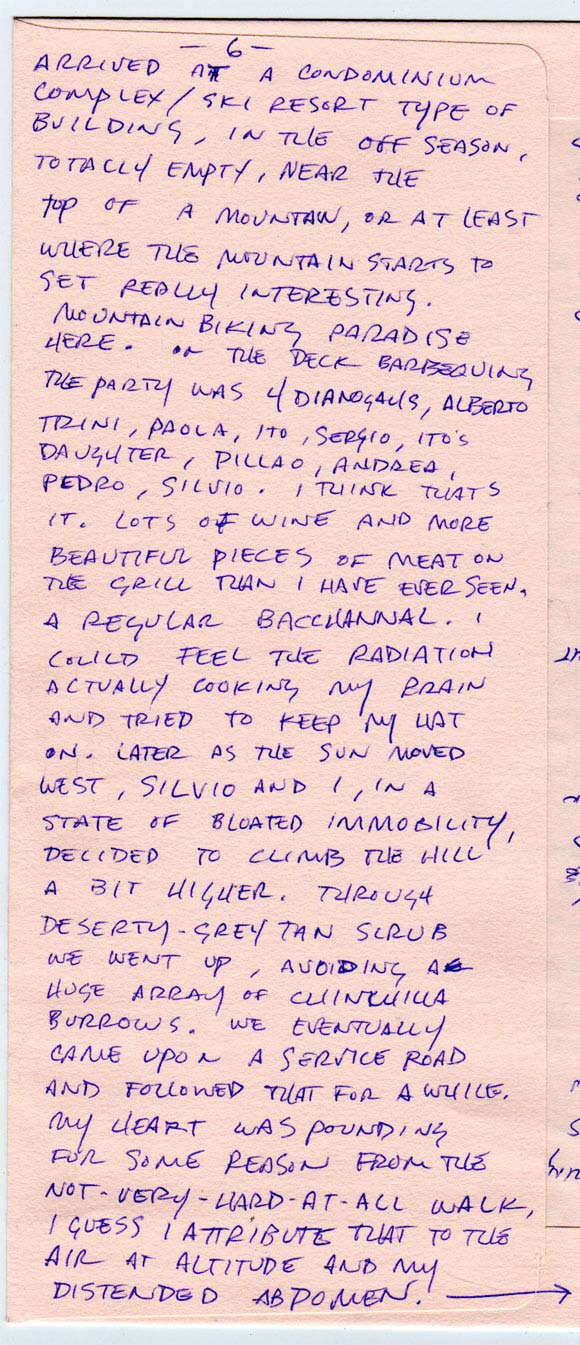 — 6 —
ARRIVED AT A CONDOMINIUM
COMPLEX/SKI RESORT TYPE OF
BUILDING, IN THE OFF SEASON,
TOTALLY EMPTY, NEAR THE
TOP OF A MOUNTAIN, OR AT LEAST
WHERE THE MOUNTAIN STARTS TO
GET REALLY INTERESTING.
MOUNTAIN BIKING PARADISE
HERE. ON THE DECK BARBEQUING
THE PARTY WAS 4 DIANOGAHS, ALBERTO
TRINI, PAOLA, ITO, SERGIO, ITO'S
DAUGHTER, PILLAO, ANDREA,
PEDRO, SILVIO. I THINK THATS
IT. LOTS OF WINE AND MORE
BEAUTIFUL PIECES OF MEAT ON
THE GRILL THAN I HAVE EVER SEEN.
A REGULAR BACCHANNAL. I
COULD FEEL THE RADIATION
ACTUALLY COOKING MY BRAIN
AND TRIED TO KEEP MY HAT
ON. LATER AS THE SUN MOVED
WEST, SILVIO AND I, IN A
STATE OF BLOATED IMMOBILITY,
DECIDED TO CLIMB THE HILL
A BIT HIGHER. THROUGH
DESERTY-GREY TAN SCRUB
WE WENT UP, AVOIDING A
HUGE ARRAY OF CHINCHILLA
BURROWS. WE EVENTUALLY
CAME UPON A SERVICE ROAD
AND FOLLOWED THAT FOR A WHILE.
MY HEART WAS POUNDING
FOR SOME REASON FROM THE
NOT-VERY-HARD-AT-ALL WALK,
I GUESS I ATTRIBUTE THAT TO THE
AIR AT ALTITUDE AND MY
DISTENDED ABDOMEN. →